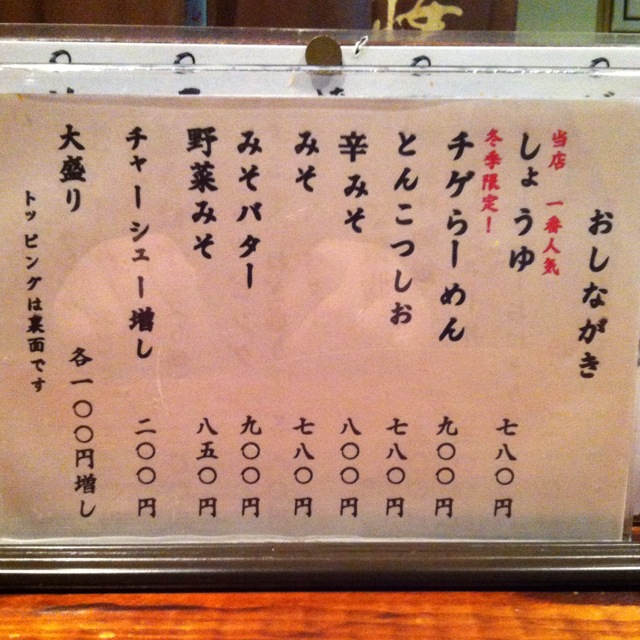 おしながき
当店 一番人気
しょうゆ 七八〇円
冬季限定!
チゲらーめん 九〇〇円
とんこつしお 七八〇円
辛みそ 八〇〇円
みそ 七八〇円
みそバター 九〇〇円
野菜みそ 八五〇円
チャーシュー増し 二〇〇円
大盛り 各一〇〇円増し
トッピングは裏面です